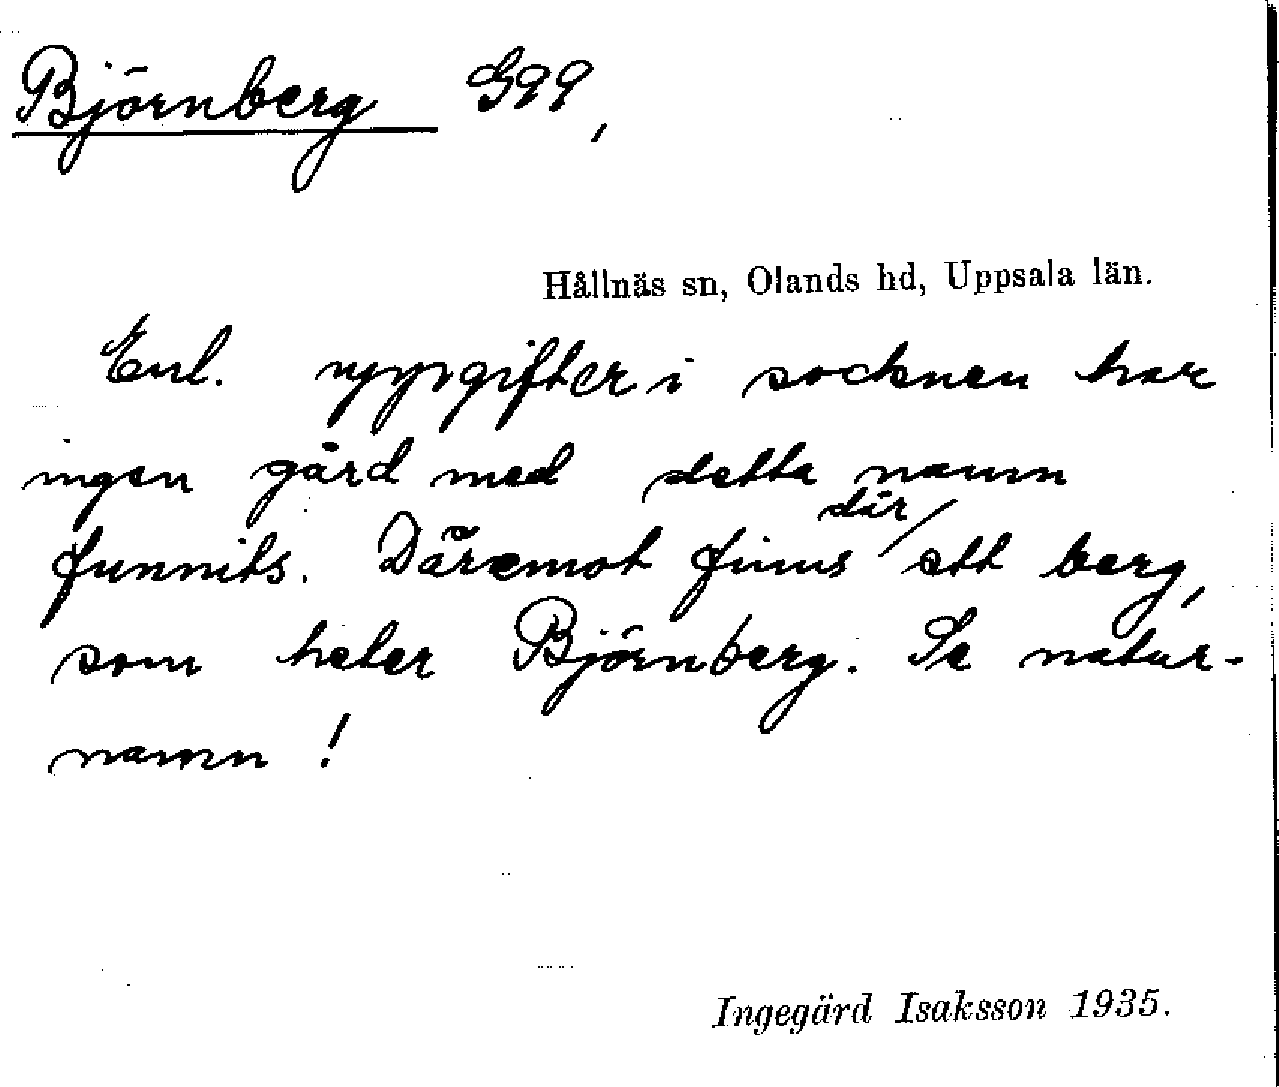 Björnberg Ggg,
Hållnäs sn, Olands hd, Uppsala län.
Enl. uppgifter i socknen har
ingen gård med detta namn
där
funnits. Däremot finns / ett berg,
som heter Björnberg. Se natur-
namn!
Ingegärd Isaksson 1935.